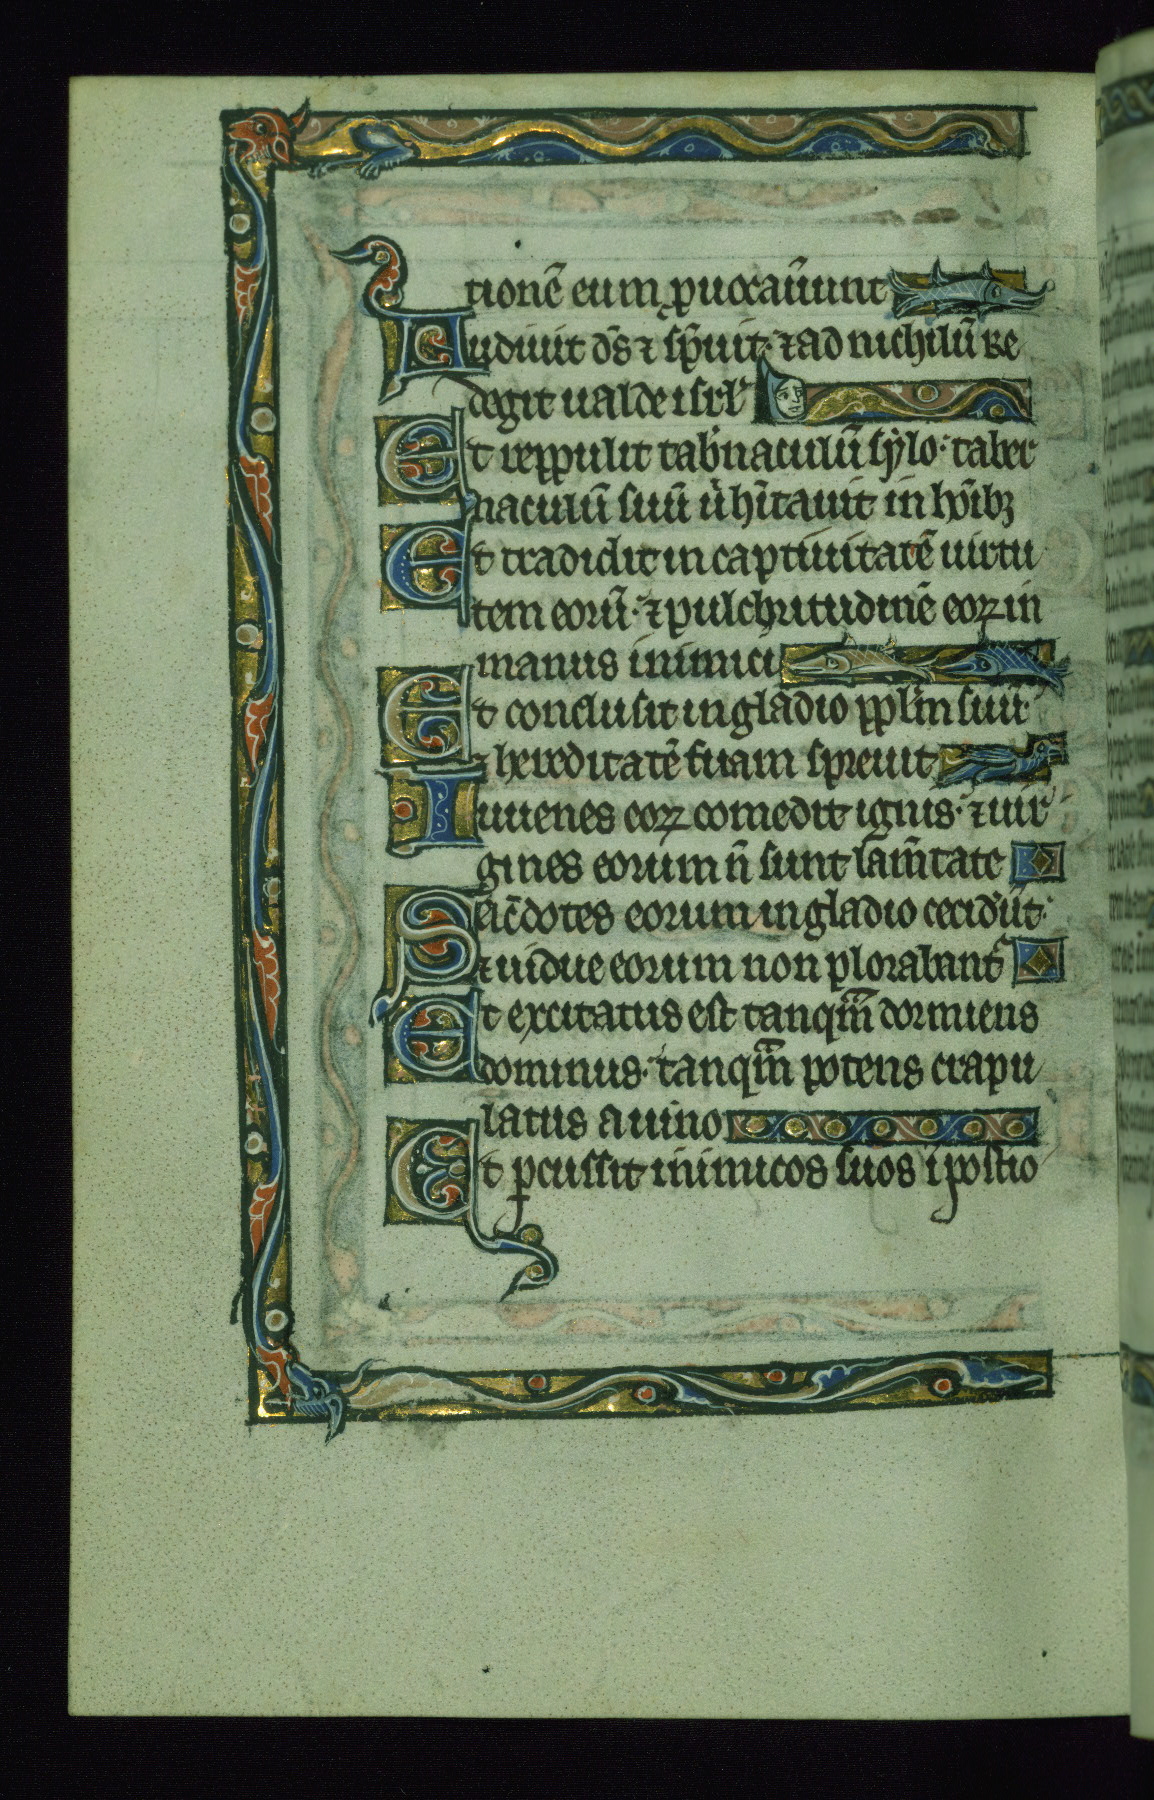 tionē eum ꝓuocaueꝛunt
Audiuit dn̄s ⁊ sp̄uit· ⁊ ad nichilū re
degit ualde isrl̄
Et reppulit tab̄naculū sylo· taber
naculū suū u᷑ hītauit in hōībꝫ
Et tradidit in captiuitatē uirtu
tem eorū· ⁊ pulchritudinē eoꝝ in
manus inimici
Et conclusit in gladio pplm̄ suū
⁊ hereditatē suam spreuit
Iuuenes eoꝝ comedit ignis· ⁊ uir
gines eorum n̄ sunt lam̄tate
Sac̄dotes eorum in gladio cecid̄ūt·
⁊ uidue eorum non plorabant᷑
Et excitatus est tanqm̄ dormiens
dominus· tanqm̄ potens crapu
latus a uino
Et ꝑcussit inimicos suos ī postio